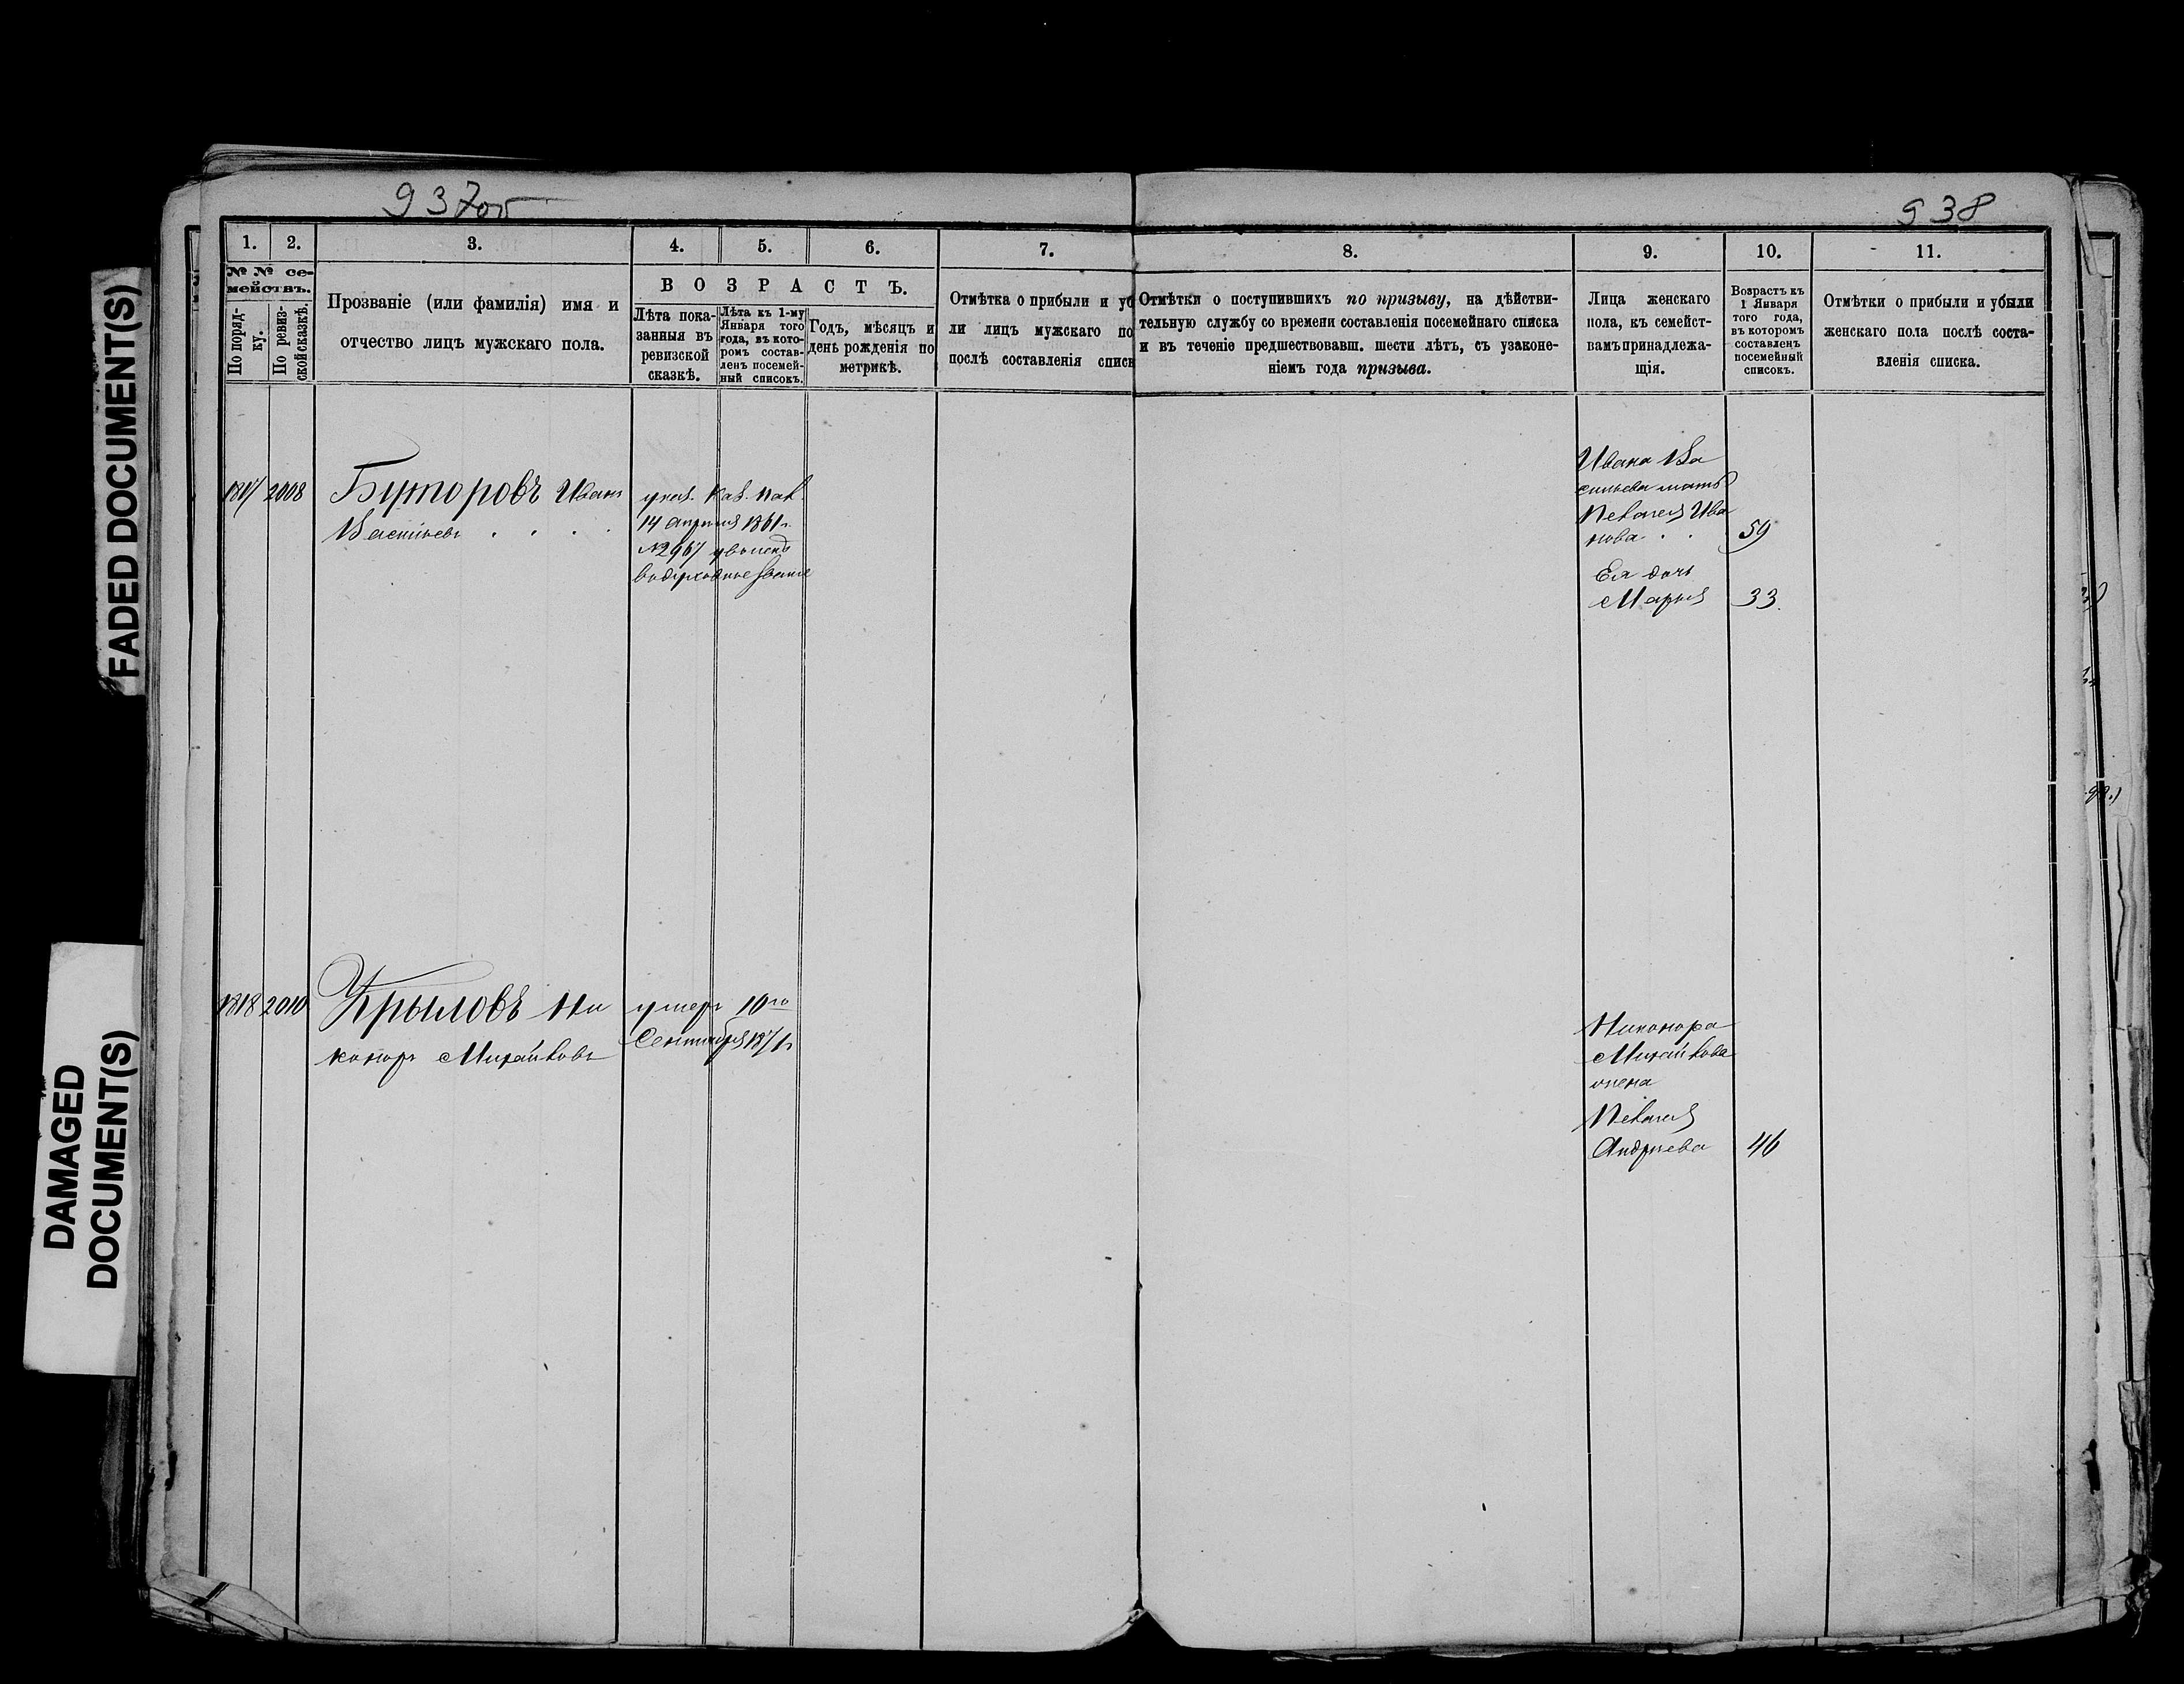 937об
938
1.
2.
3.
4.
5.
6.
7.
8.
9.
10.
11.
№ № се-
мействъ.
По поряд-
ку.
По ревиз-
ской сказкѣ.
Прозваніе (или фамилія) имя и
отчество лицъ мужскаго пола.
ВОЗРАСТЪ.
Лѣта пока-
занныя въ
ревизской
сказкѣ.
Лѣта къ 1-му
Января того
года, въ кото-
ромъ состав-
ленъ посемей-
ный списокъ.
Годъ, мѣсяцъ и
день рожденія по
метрикѣ.
Отмѣтка о прибыли и уб
ли лицъ мужскаго по
послѣ составленія списк
Отмѣтки о поступившихъ по призыву, на дѣйстви-
тельную службу со времени составленія посемейнаго списка
и въ теченіе предшествовавш. шести лѣтъ, съ узаконе-
ніемъ года призыва.
Лица женскаго
пола, къ семейст-
вамъ принадлежа-
щія.
Возрастъ къ
1 Января
того года,
въ которомъ
составленъ
посемейный
списокъ.
Отмѣтки о прибыли и убыли
женскаго пола послѣ соста-
вленія списка.
1817 2008 Буторовъ Иванъ
Васильевъ . . . .
указ. Каз. Пал.
14 апрѣля 1861 г.
№2967 уволенъ
въ духовное званіе
Ивана Ва
сильева мать
Пелагея Ива
нова . . 59
Ея дочь
Марья 33.
1818 2010 Крыловъ Ни
каноръ Михайловъ
умеръ 10го
Сентября 1871г
Никонора
Михайлова
жена
Пелагея
Андреева 46
FADED DOCUMENT(S)
DAMAGED
DOCUMENT(S)